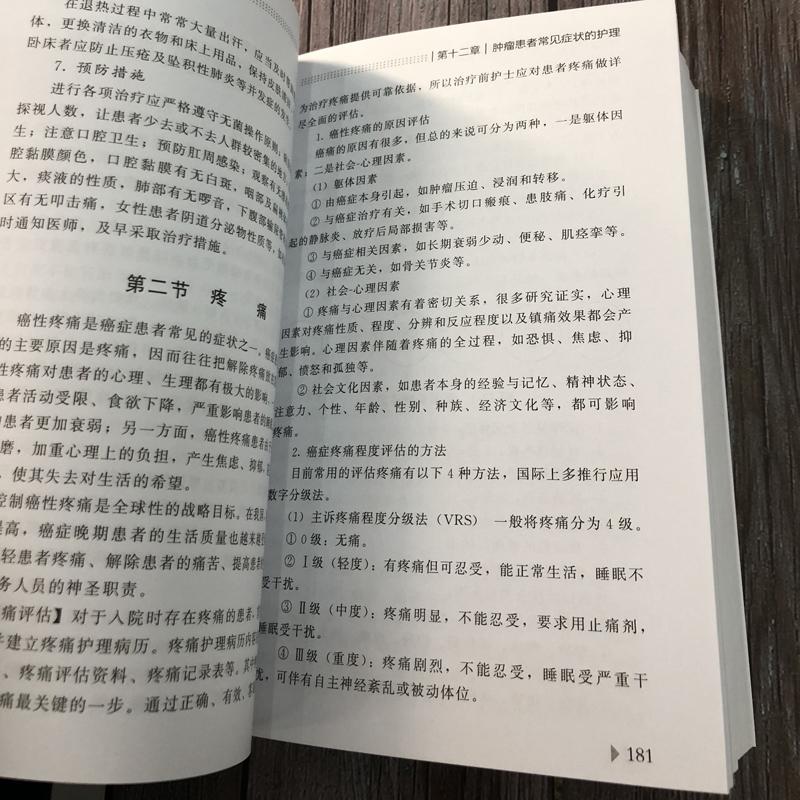 在退热过程中常常大量出汗，应当及时
体，更换清洁的衣物和床上用品，保持皮肤
卧床者应防止压疮及坠积性肺炎等并发症的发生
7. 预防措施
进行各项治疗应严格遵守无菌操作原则，
探视人数，让患者少去或不去人群较密集的地方
生；注意口腔卫生；预防肛周感染；观察有无
腔黏膜颜色，口腔黏膜有无白斑，咽部及扁桃
大，痰液的性质，肺部有无啰音，下腹部输尿管
区有无叩击痛，女性患者阴道分泌物性质等，
时通知医师，及早采取治疗措施。
第二节 疼 痛
癌性疼痛是癌症患者常见的症状之一。
的主要原因是疼痛，因而往往把解除疼痛
性疼痛对患者的心理、生理都有极大的影响，
患者活动受限、食欲下降，严重影响患者的
患者更加衰弱；另一方面，癌性疼痛患者
磨，加重心理上的负担，产生焦虑、抑郁、
，使其失去对生活的希望。
控制癌性疼痛是全球性的战略目标。在我国
提高，癌症晚期患者的生活质量也越来越
轻患者疼痛、解除患者的痛苦、提高患者
务人员的神圣职责。
痛评估】 对于入院时存在疼痛的患者，
并建立疼痛护理病历。疼痛护理病历内容
、疼痛评估资料、疼痛记录表等。其中
痛最关键的一步。通过正确、有效、
第十二章 | 肿瘤患者常见症状的护理
为治疗疼痛提供可靠依据，所以治疗前护士应对患者疼痛做详
尽全面的评估。
1. 癌性疼痛的原因评估
癌痛的原因有很多，但总的来说可分为两种，一是躯体因
素；二是社会-心理因素。
（1）躯体因素
① 由癌症本身引起，如肿瘤压迫、浸润和转移。
② 与癌症治疗有关，如手术切口瘢痕、患肢痛、化疗引
起的静脉炎、放疗后局部损害等。
③ 与癌症相关因素，如长期衰弱少动、便秘、肌痉挛等。
④ 与癌症无关，如骨关节炎等。
（2）社会-心理因素
① 疼痛与心理因素有着密切关系，很多研究证实，心理
因素对疼痛性质、程度、分辨和反应程度以及镇痛效果都会产
生影响。心理因素伴随着疼痛的全过程，如恐惧、焦虑、抑
郁、愤怒和孤独等。
② 社会文化因素，如患者本身的经验与记忆、精神状态、
注意力、个性、年龄、性别、种族、经济文化等，都可影响
疼痛。
2. 癌症疼痛程度评估的方法
目前常用的评估疼痛有以下 4 种方法，国际上多推行应用
数字分级法。
（1）主诉疼痛程度分级法（VRS） 一般将疼痛分为 4 级。
① 0 级：无痛。
② Ⅰ级（轻度）：有疼痛但可忍受，能正常生活，睡眠不
受干扰。
③ Ⅱ级（中度）：疼痛明显，不能忍受，要求用止痛剂，
睡眠受干扰。
④ Ⅲ级（重度）：疼痛剧烈，不能忍受，睡眠受严重干
扰，可伴有自主神经紊乱或被动体位。
181